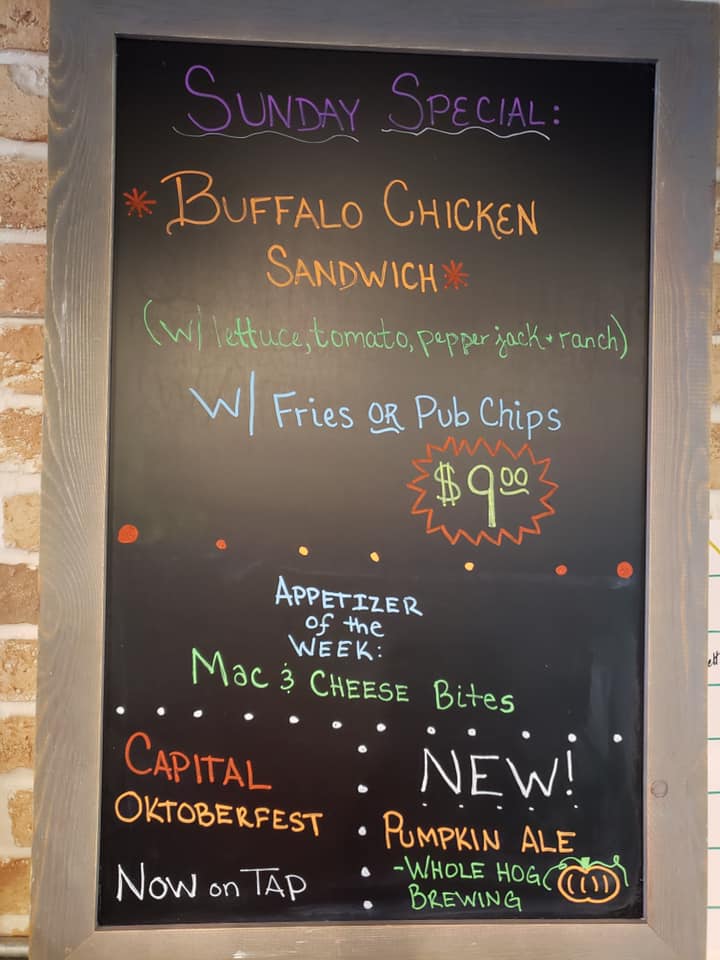 SUNDAY SPECIAL:
*BUFFALO CHICKEN
SANDWICH*
(w/ lettuce, tomato, pepper jack + ranch)
W/ Fries OR Pub Chips
$9.00
APPETIZER
of the
WEEK:
Mac & CHEESE Bites
CAPITAL
OKTOBERFEST
NOW on TAP
NEW!
PUMPKIN ALE
-WHOLE HOG
BREWING